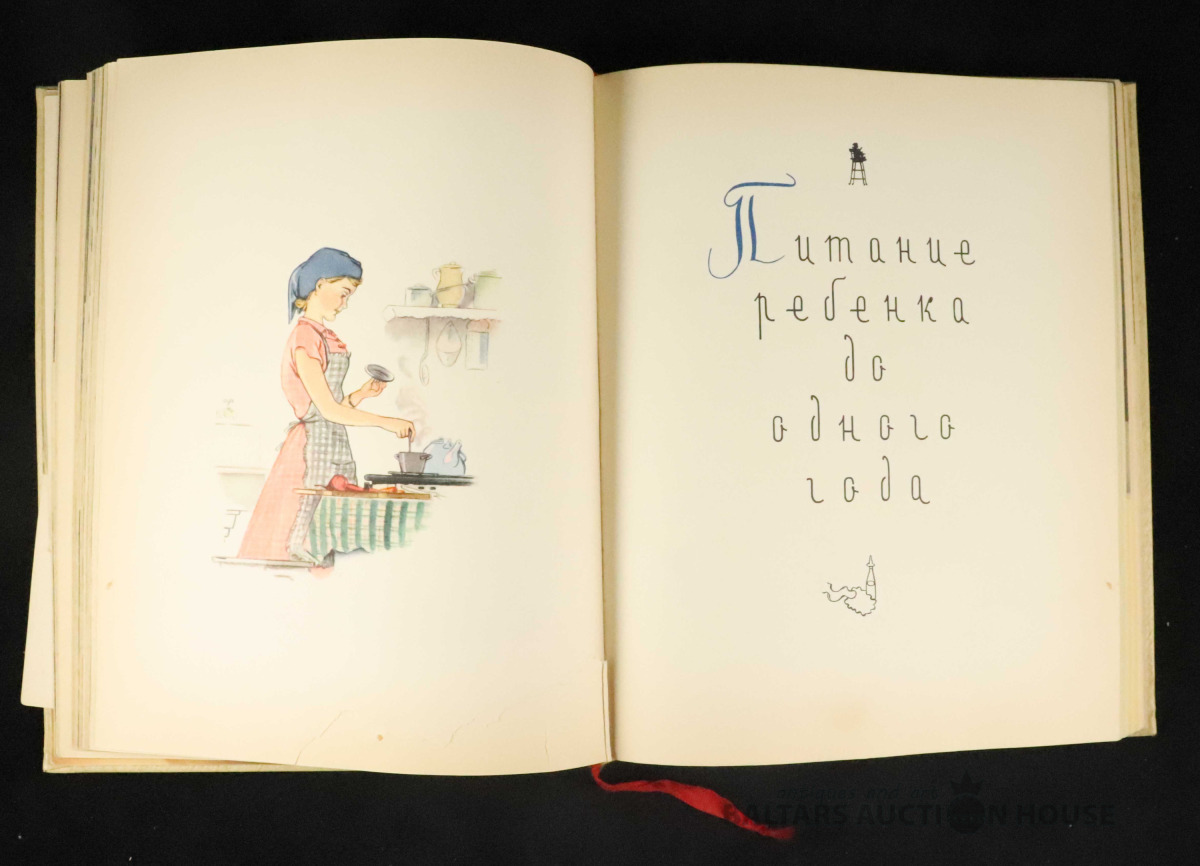 Питание
ребенка
до
одного
года
ALTARS AUCTION HOUSE